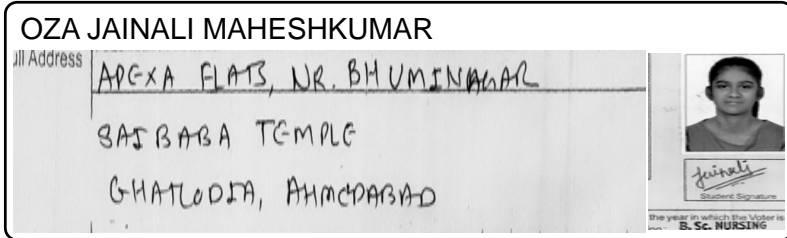 OZA JAINALI MAHESHKUMAR
ull Address
APEXA FLATS, NR. BHUMINAGAR
SAIBABA TEMPLE
GHATLODIA, AHMEDABAD
Jainali
Student Signature
the year in which the Voter is
B. Sc. NURSING